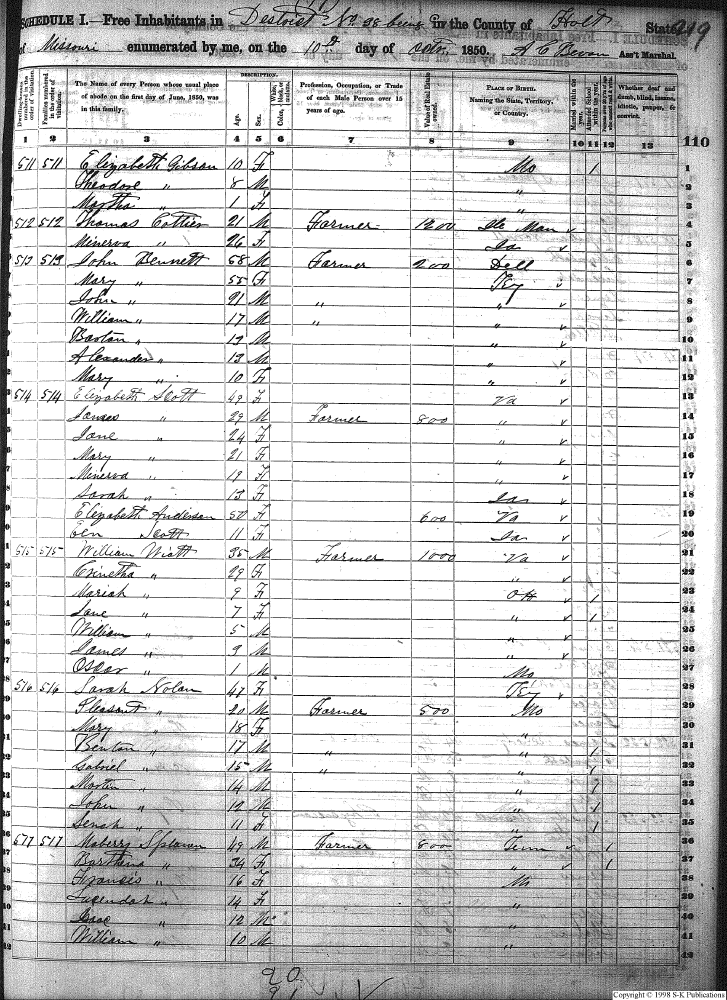 SCHEDULE I.—Free Inhabitants in District No 38 being in the County of Holt State 219
of Missouri enumerated by me, on the 10th day of Octr. 1850. A C Bevan Ass't Marshal.
DESCRIPTION.
Dwelling-houses numbered in the order of visitation. Families numbered in the order of visitation. The Name of every Person whose usual place of abode on the first day of June, 1850, was in this family. Age. Sex. White, black, or mulatto. Color, Profession, Occupation, or Trade of each Male Person over 15 years of age. Value of Real Estate owned. PLACE OF BIRTH. Naming the State, Territory, or Country. Married within the year. Attended School within the year. Whether deaf and dumb, blind, insane, idiotic, pauper, or convict.
1 2 3 4 5 6 7 8 9 10 11 12 13 110
511 511 Elizabeth Gibson 10 F Mo 1 1
Theodore " 8 M " 2
Martha " 1 F " 3
512 512 Thomas Cottier 21 M Farmer 1200 Ile Man 4
Minerva " 26 F Ia 5
513 513 John Bennett 58 M Farmer 200 Dell 6
Mary " 55 F Ky 7
John " 21 M " " 8
William " 17 M " " 9
Barton " 13 M " 10
Alexander " 13 M " 11
Mary " 10 F " 12
514 514 Elizabeth Scott 49 F Va 13
James " 29 M Farmer 800 " 14
Jane " 24 F " 15
Mary " 21 F " 16
Minerva " 19 F " 17
Sarah " 13 F Ia 18
Elizabeth Anderson 50 F 600 Va 19
Scott 11 F Ia 20
515 515 William Wiatt 35 M Farmer 1000 Va 21
" 29 F " 22
Mariah " 9 F 1 23
Jane " 7 F " 1 24
William " 5 M " 25
James " 9 M " 26
Oscar " 1 M Mo 27
516 516 Sarah Nolan 47 F Ky 28
Pleasant " 20 M Farmer 500 Mo 29
Mary " 18 F " 30
Benton " 17 M " " 1 31
Gabriel " 15 M " " 1 32
Morten " 14 M " 1 33
John " 12 M " 1 34
" 11 F " 1 35
517 517 Maberry 49 M Farmer 800 Tenn 1 36
" 34 F " 1 37
Francis " 16 F Mo 38
" 14 F " 39
Isaac " 12 M " 40
William " 10 M " 41
42
90
Copyright © 1998 S-K Publications